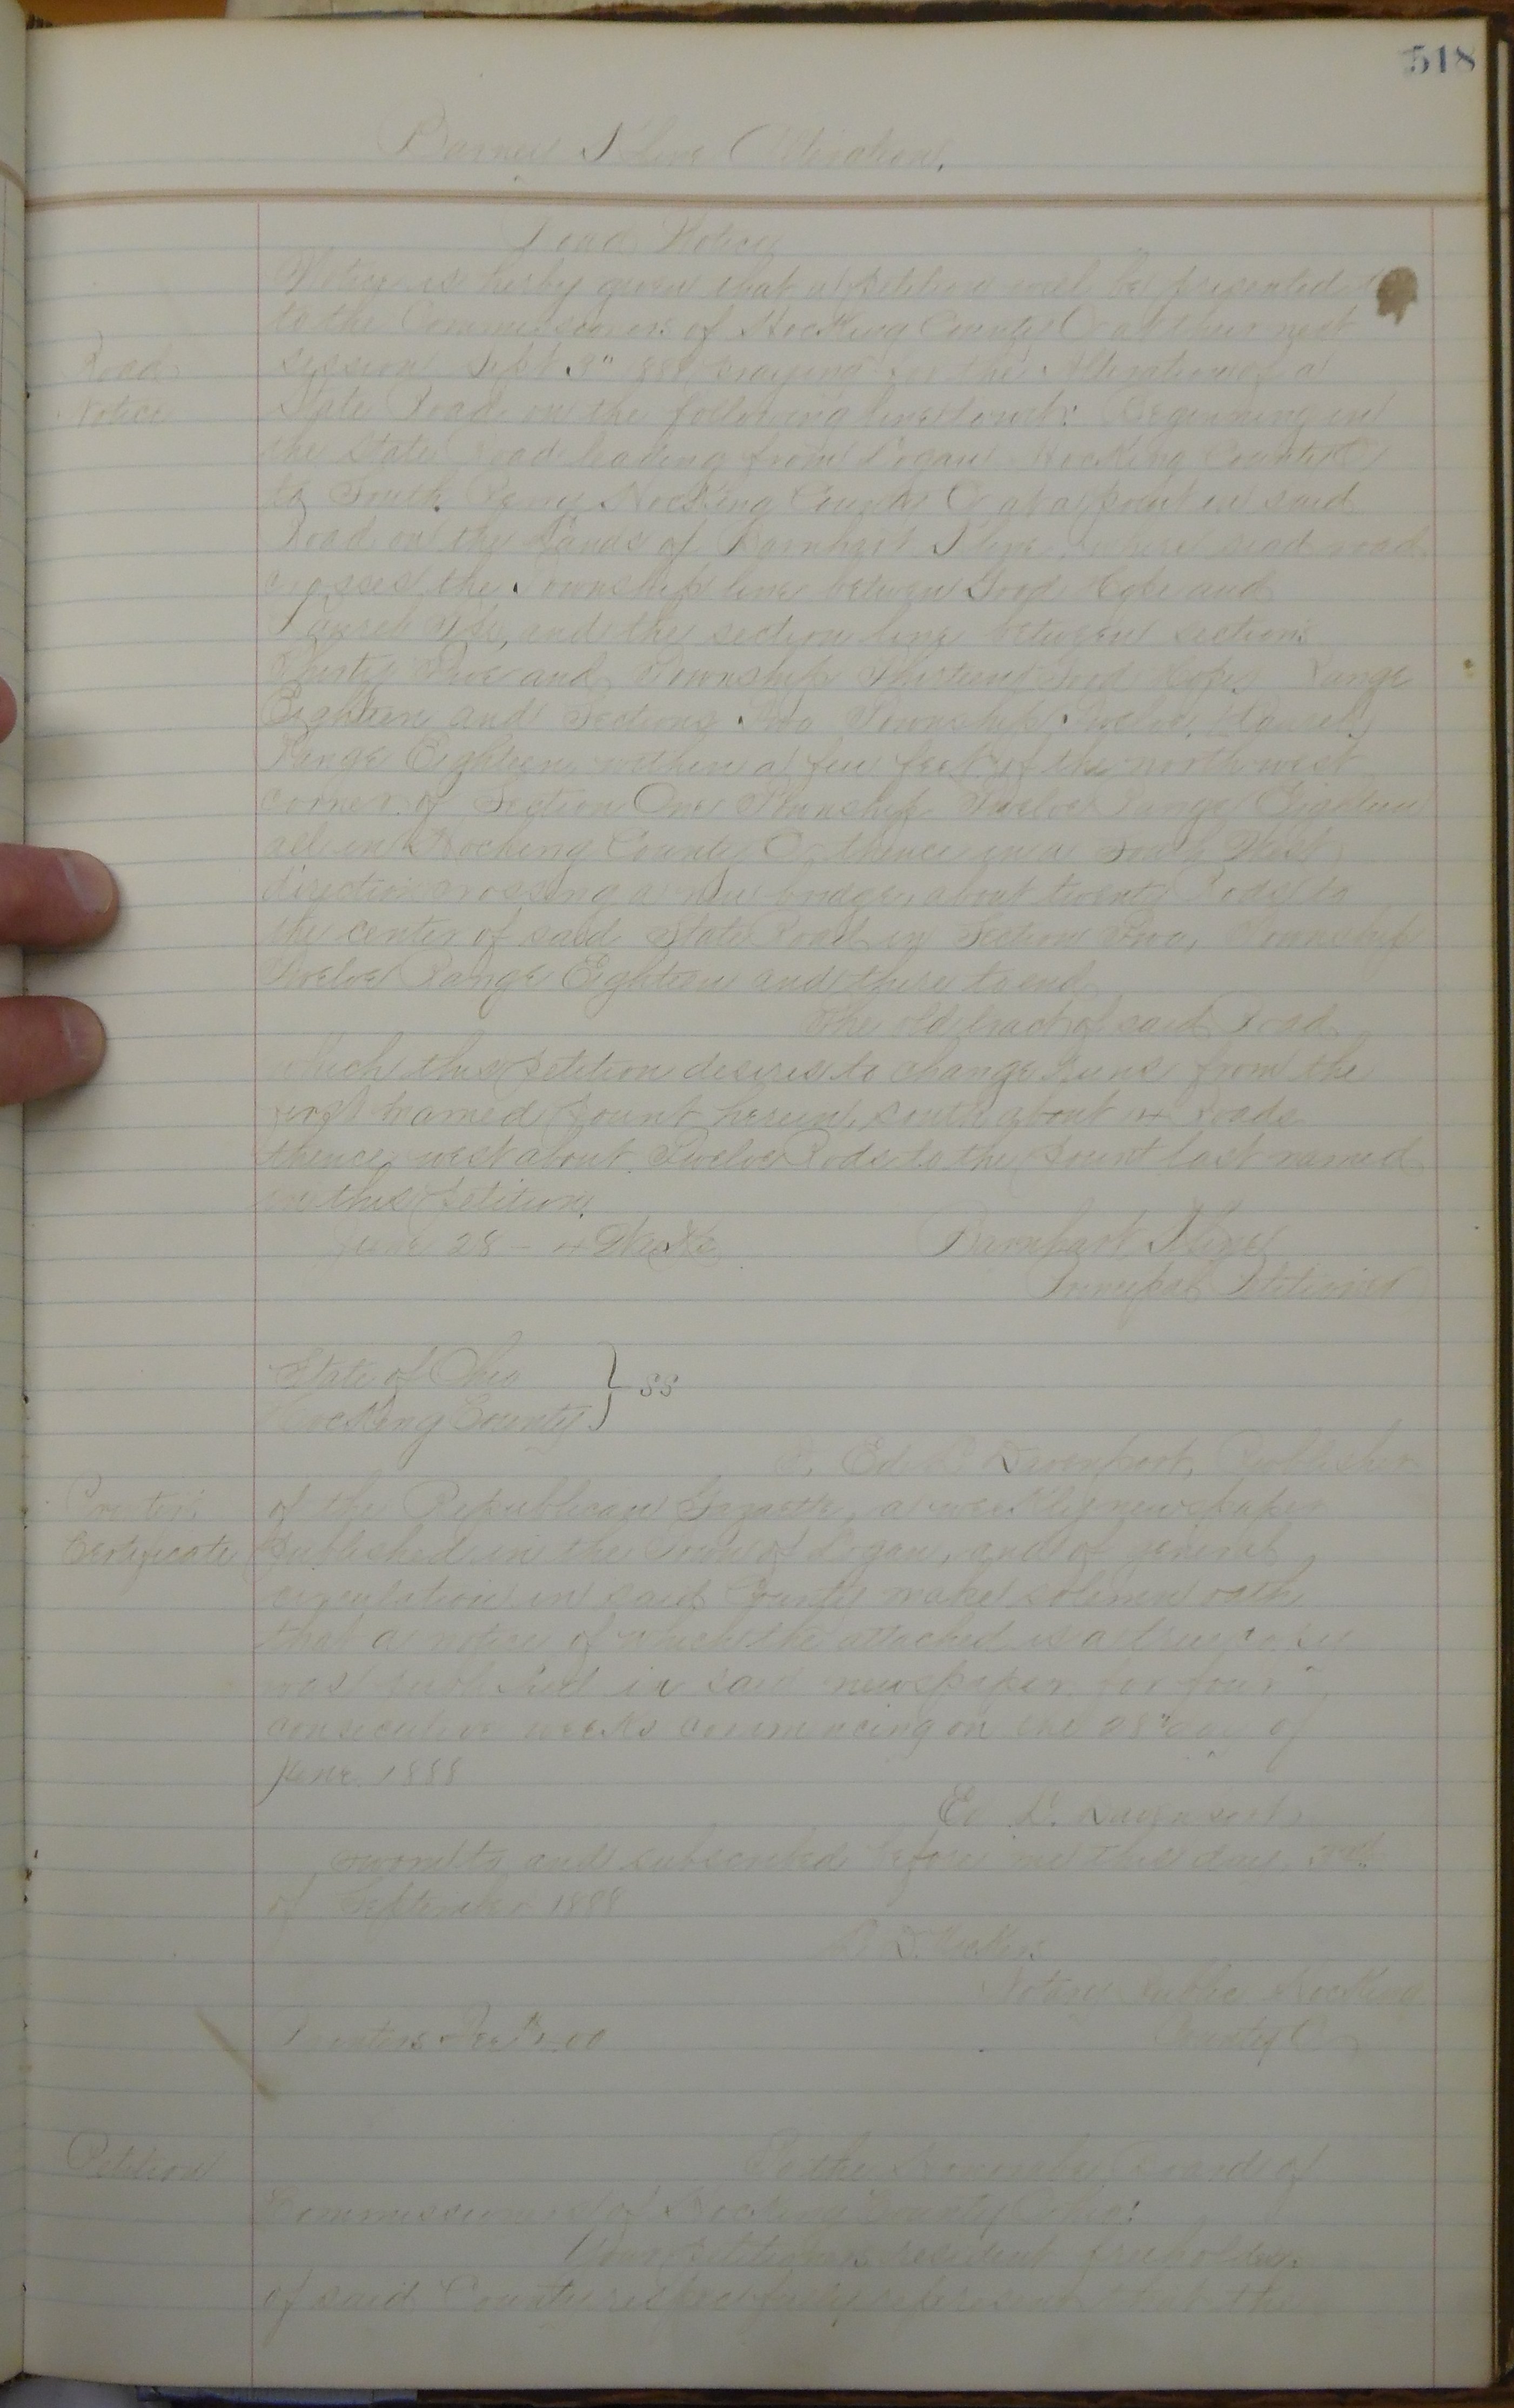 518
Alteration.
Road Notice
Notice is herby given that a petition will be presented
to the Commissioners of Hocking County O at their next
Road
session Sept 3" 1888 praying for the Alteration of a
Notice
State Road on the following line towit: Beginning in
the State Road leading from Logan Hocking County O
to South Perry Hocking County O at a point in said
Road on the Lands of where said road
crosses the Township line between Good Hope and
Laurel Tps, and the section line between sections
Thirty Five and Township Thirteen Good Hope Range
Eighteen and Sections Two Township Twelve, Laurel,
Range Eighteen, within a few feet of the north west
corner of Section One Township Twelve Range Eighteen
all in Hocking County O thence in a South West
direction crossing a new bridge, about twenty Rods to
the center of said State Road in Section Two, Township
Twelve Range Eighteen and there to end
The old tract of said Road
which this petition desires to change Runs from the
first named point herein, south about 14 Roads
thence west about Twelve Rods to the point last named
in this petition.
June 28 - 4 Weeks Barnhart
Principal Petitioner
State of Ohio
Hocking County } SS
I, Ed. Davenport, Publisher
Printers
of the Republican Gazette, a weekly newspaper
Certificate
published in the Town of Logan, and of general
circulation in said County make solemn oath
that a notice of which the attached is a true copy
was published in said newspaper for four
consecutive weeks commencing on the 28" day of
June 1888
Ed L. Davenport
Sworn to and subscribed before me this day
of September 1888
Notary Public Hocking
County O
Printers Fee
Petition
To the Honorable Board of
Commissioners of Hocking County Ohio:
Your petitioners resident freeholders
of said County respectfully represent that the